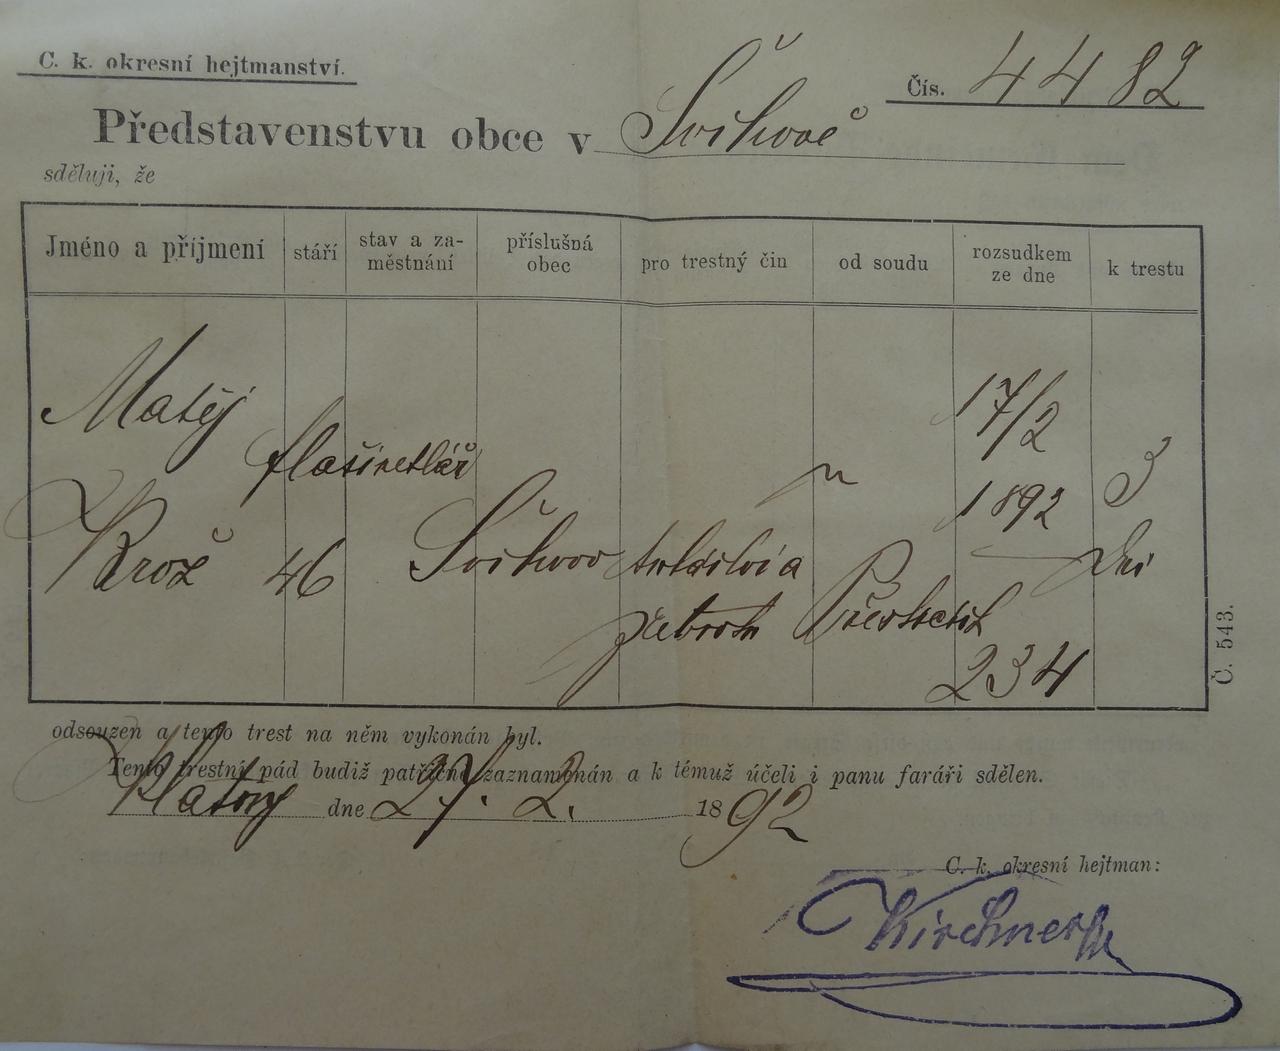 C. k. okresní hejtmanství.
Čís. 4482
Představenstvu obce v Švihově
sděluji, že
Jméno a příjmení stáří stav a za- městnání příslušná obec pro trestný čin od soudu rozsudkem ze dne k trestu
Matěj 17/2
flašinetlář
1892 3
Brož 46 Švihov dni
žebrota Přeštice
234
odsouzen a tento trest na něm vykonán byl.
Tento trestní pád budiž patřičně zaznamenán a k témuž účeli i panu faráři sdělen.
Klatovy dne 27. 2. 1892
C. k. okresní hejtman:
Kirchner
Č. 543.